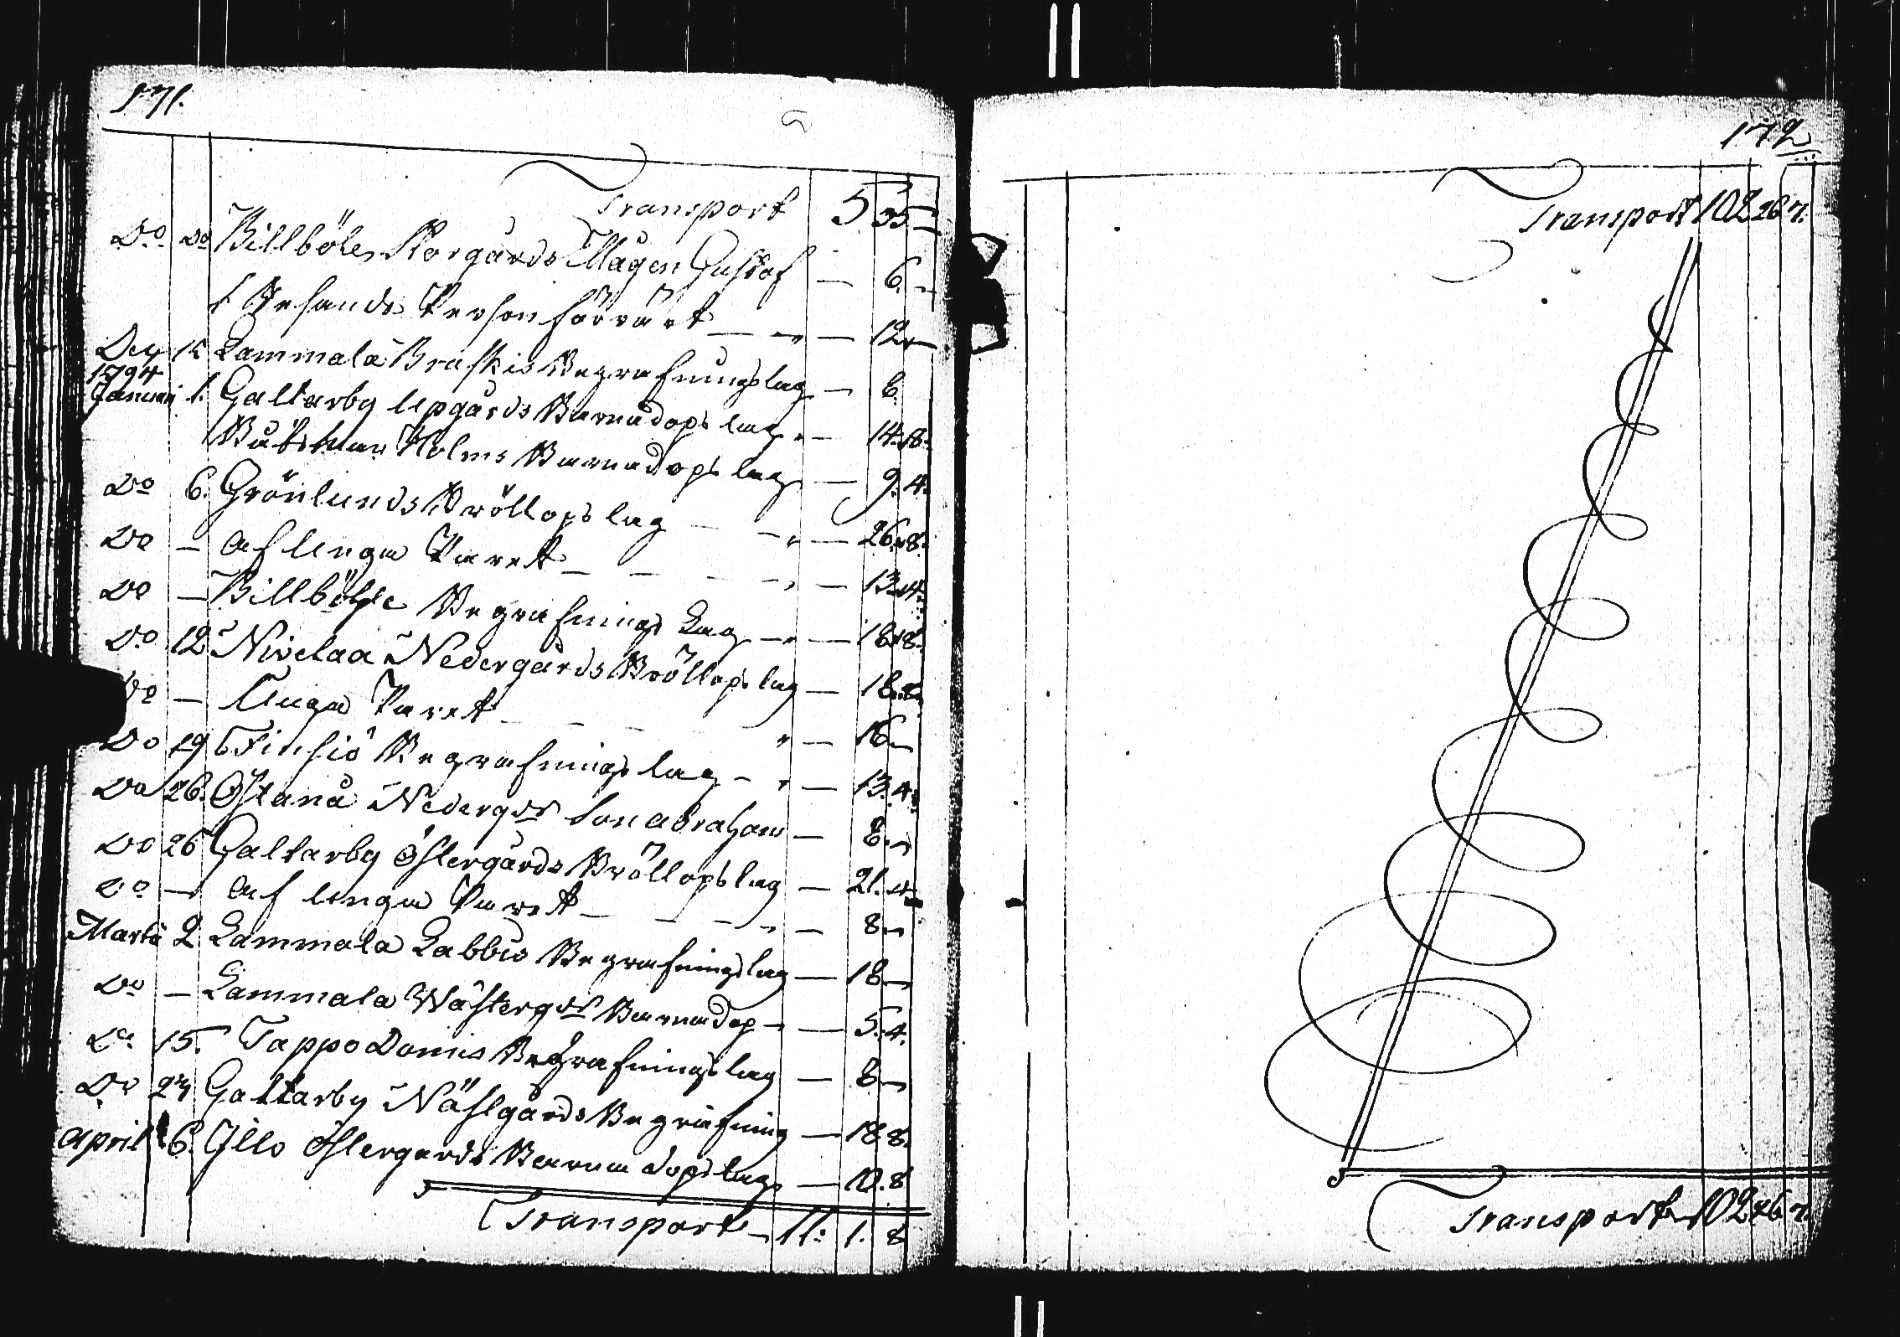 171.
Transport 5 35 —
Do Do Billböle Storgårds Mågen Gustof — 6. —
Gesands Person förrärt — „ — 12 —
Dec 15 Lammala Braskis Begrafningslag — 6.
1794
Januari 1. Galtarby Upgårds Barnadops lag „ — 14. 8.
Båtsman Holms Barnadops lag — 9. 4.
Do 6. Grönlunds Bröllops lag — „ — 26. 8.
Do — af Unga Paret — — — „ — 13. 4.
Do — Billböle Begrafnings Lag — „ — 18. 8.
Do 12 Nivelaa Nedergårds Bröllops lag — 18.
Do — Unga Paret — „ — 16 —
Do 19 Finsiö Begrafnings lag — „ — 13. 4.
Do 26. Östanå Nedergds Son Abraham — 8. —
Do 26 Galtarby Östergårds Bröllops lag — 21. 4.
Do — af unga Paret — — — „ — 8 —
Martii 2 Lammala Labbis Begrafningslag — 18 —
Do — Lammala Wästergds Barnadop — — 5. 4.
Do 15. Tappo Donnis Begrafningslag — 8 —
Do 24 Galtarby Näsgårds Begrafning — 18 8.
April 6. Illo Östergårds Barnadopslag — 10. 8
Transport — 11: 1. 8
172
Transport 102 26 7.
Transport 102 26 7.